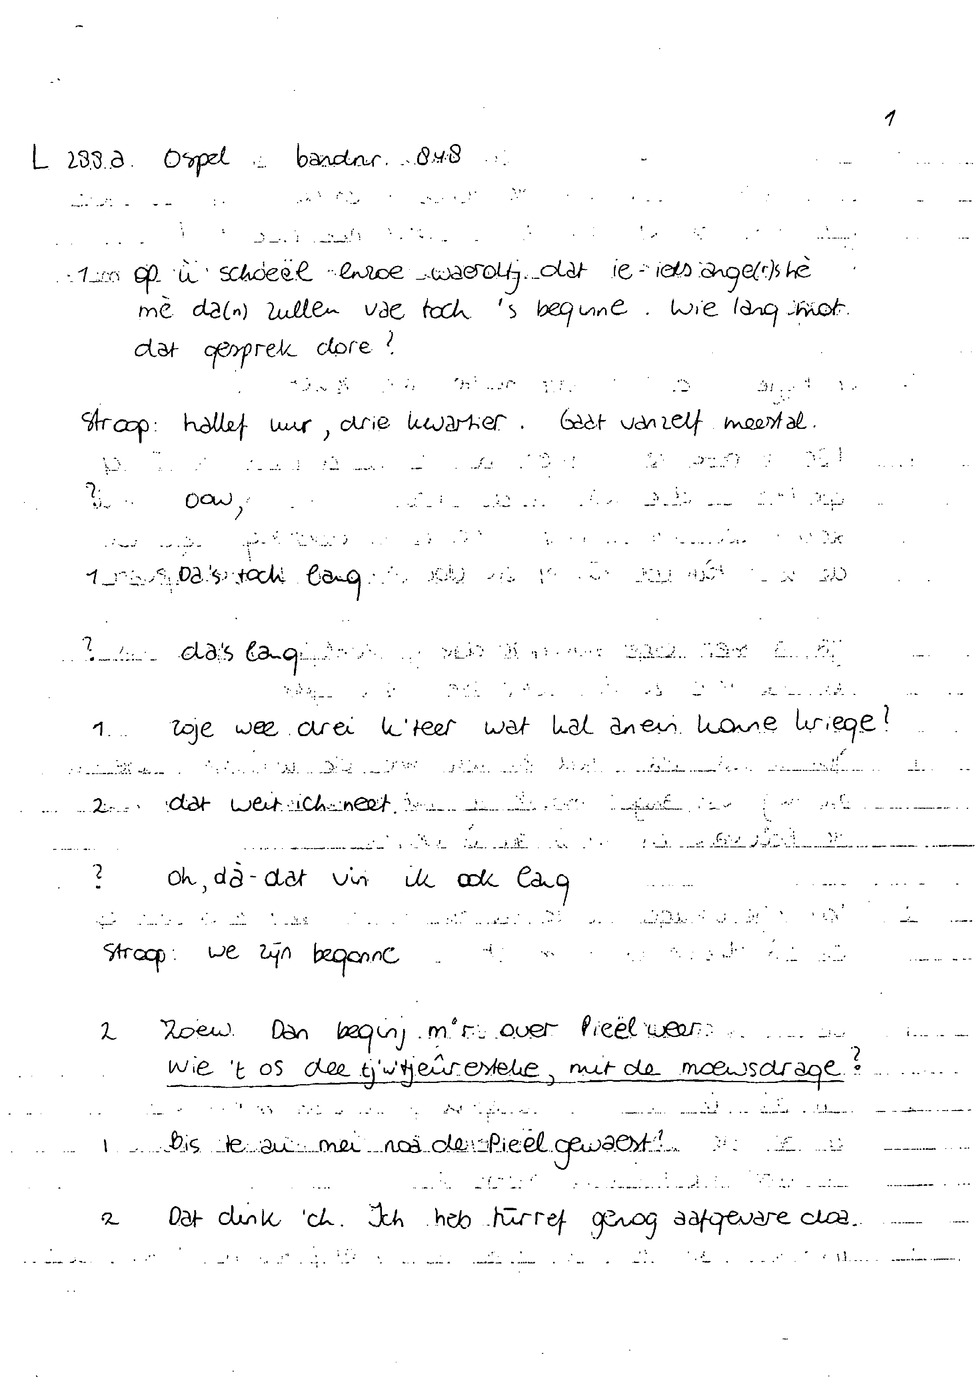 1
L 288.a. Ospel bandnr. 848
1 op ù schoeël enzoe waerdtj dat ie-iets ange(r)s hè
mè da(n) zullen vae toch 's begunne. Wie lang mot
dat gesprek dore?
Stroop: hallef uur, drie kwartier. Gaat vanzelf meestal.
? oow,
1 Da's toch lang
? da's lang
1. zoje wee drei k'teer wat kal anein konne kriege?
2 dat weit ich neet.
? oh, dà-dat vin ik ook lang
Stroop: we zijn begonne
2 Zoew. Dan beginj m'r over Pieël weer
wie 't os dee, mit de moewsdrage?
1 bis te au mei noa de Pieël gewaest?
2 Dat dink 'ch. Ich heb türref genog aafgevare doa.